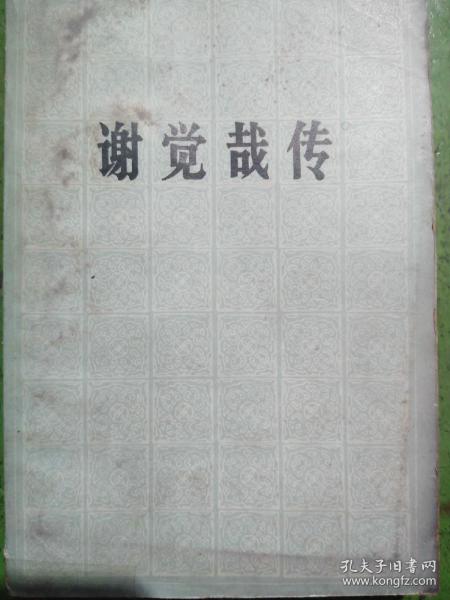 谢觉哉传
孔夫子旧书网
www.kongfz.com